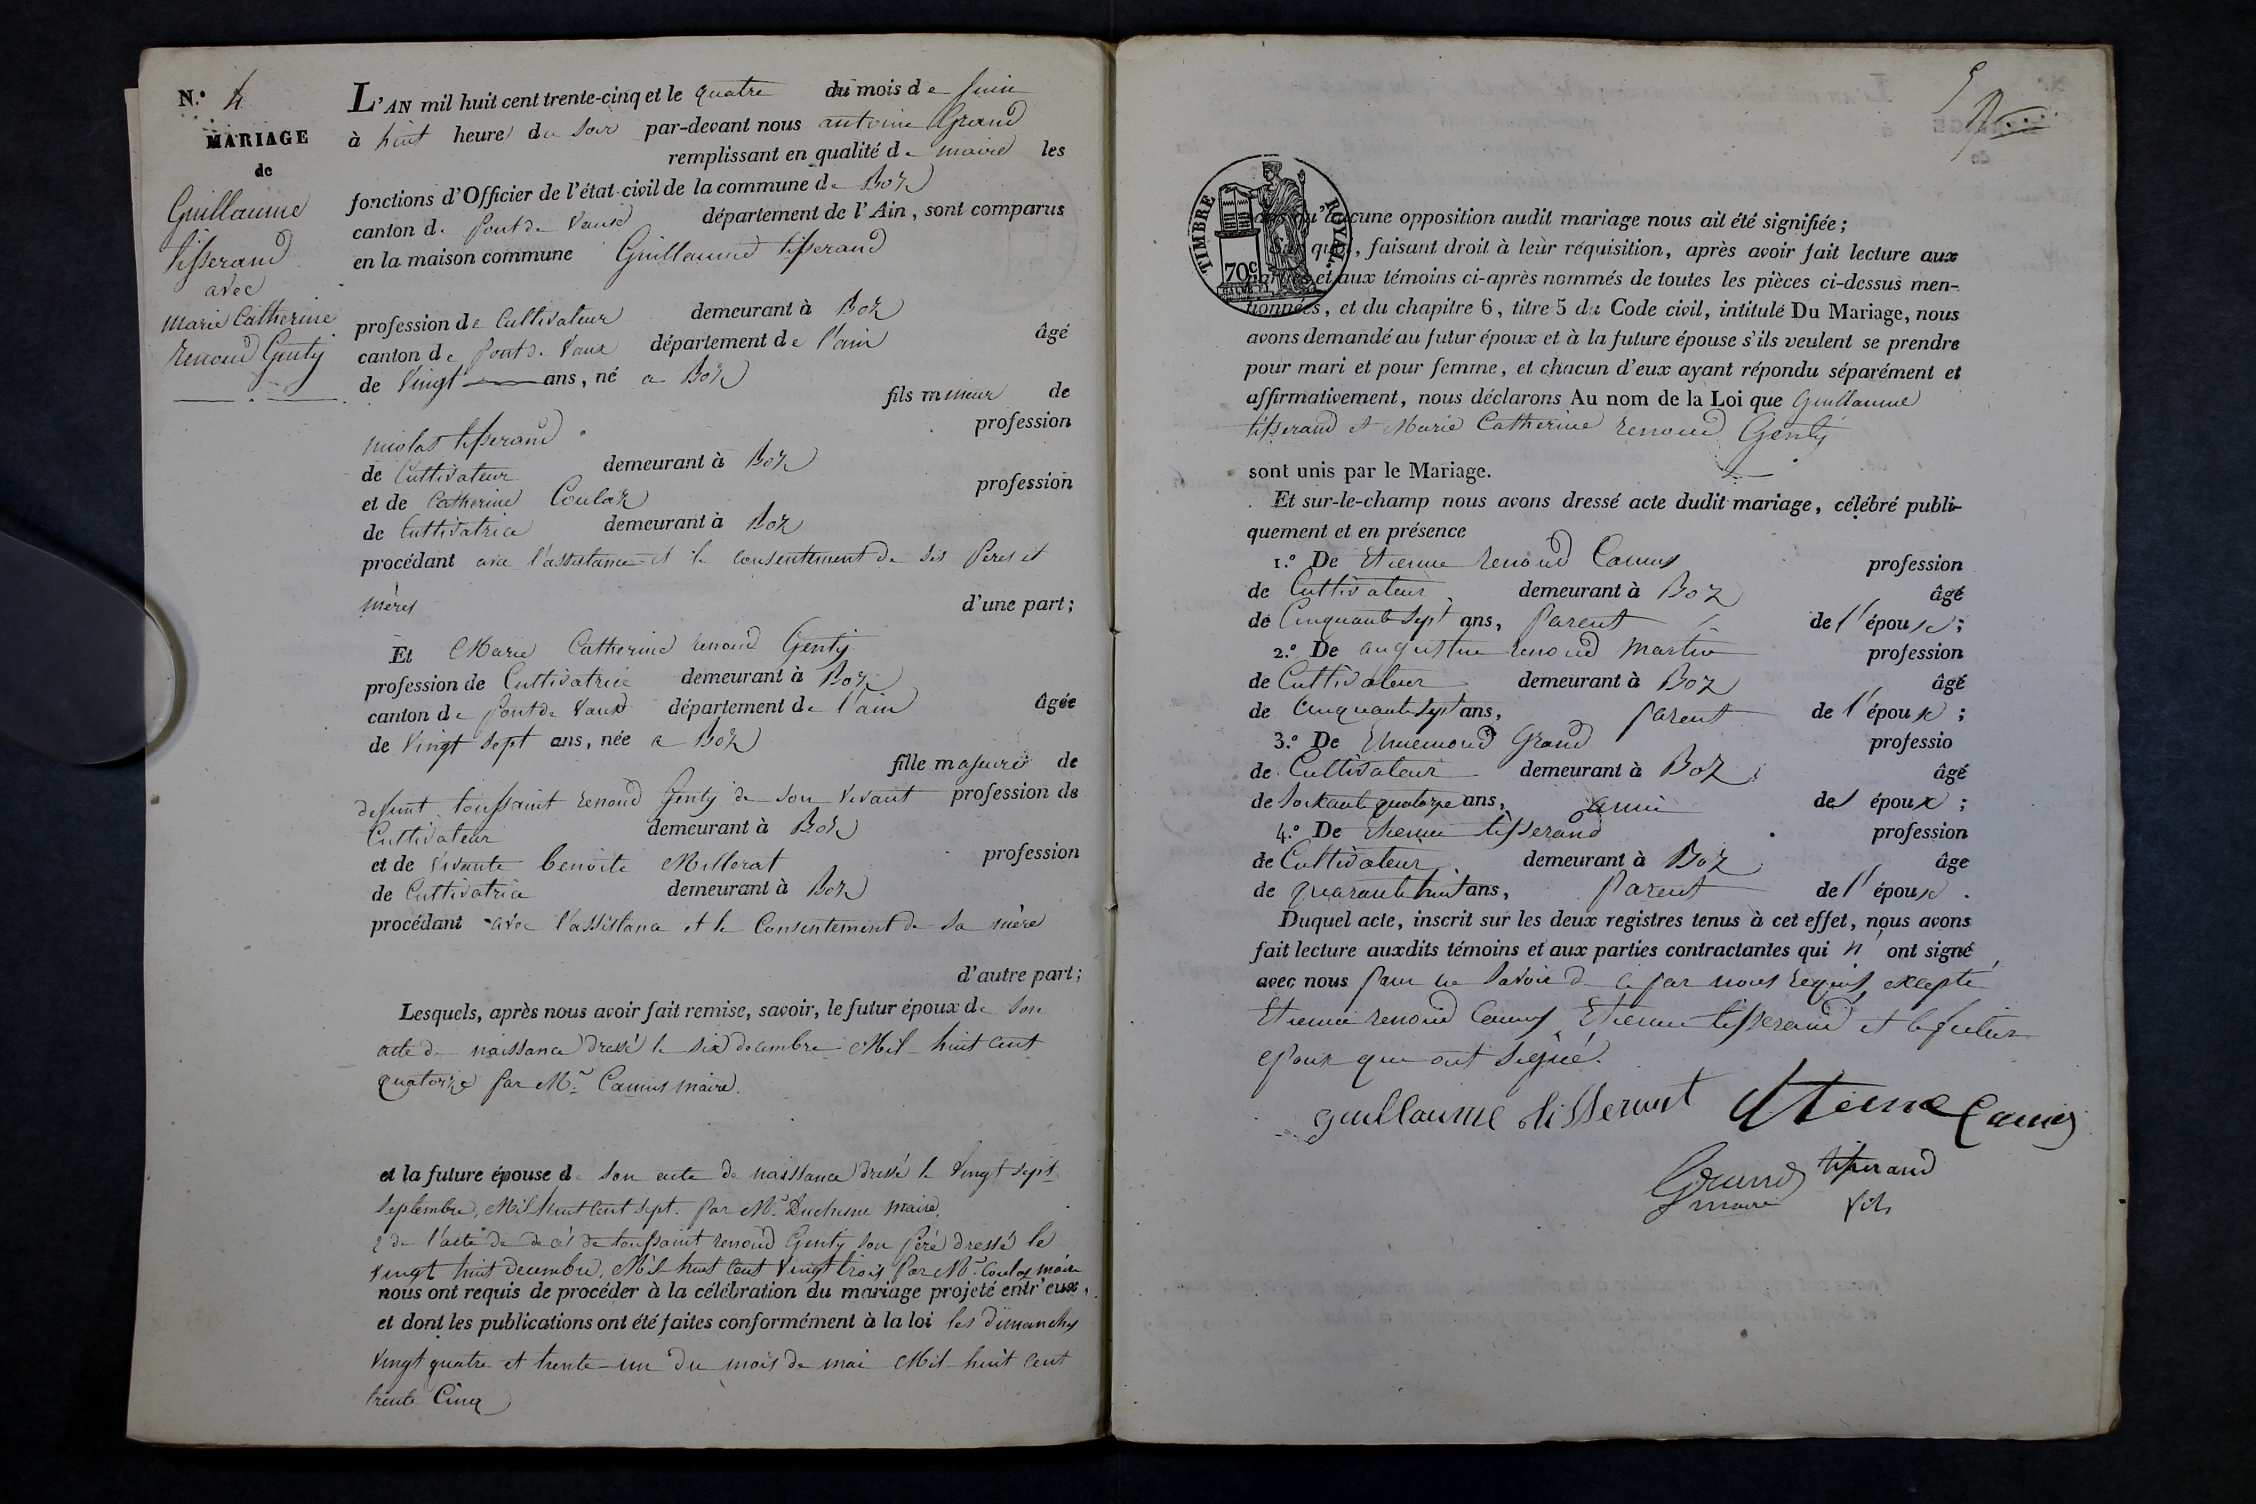 N.° 4
MARIAGE
de
Guillaume
tisserand
avec
marie Catherine
renoud Genty
L'AN mil huit cent trente-cinq et le quatre du mois de juin
à huit heures du soir par-devant nous antoine Grand
remplissant en qualité de maire les
fonctions d'Officier de l'état civil de la commune de Boz
canton de pont de Vaux département de l'Ain, sont comparus
en la maison commune Guillaume tisserand
profession de Cultivateur demeurant à Boz
canton de pont de Vaux département de l'ain âgé
de Vingt ans, né a Boz
fils mineur de
nicolas tisserand profession
de Cultivateur demeurant à Boz
et de Catherine Coulaz profession
de Cultivatrice demeurant à Boz
procédant avec l'assistance et le consentement de ses peres et
mères d'une part;
Et Marie Catherine renoud Genty
profession de Cultivatrice demeurant à Boz
canton de pont de Vaux département de l'ain âgée
de Vingt sept ans, née a Boz
fille majeure de
defunt toussaint renoud Genty de son vivant profession de
Cultivateur demeurant à Boz
et de vivante benoite Millerat profession
de Cultivatrice demeurant à Boz
procédant avec l'assistance et le Consentement de sa mère
d'autre part;
Lesquels, après nous avoir fait remise, savoir, le futur époux de son
acte de naissance dressé le six decembre Mil huit cent
quatorze par Mr. Camus maire.
et la future épouse de son acte de naissance dressé le Vingt sept
septembre, Mil huit Cent sept. par Mr. Duchesne maire,
& de l'acte de décès de toussaint renoud Genty son père dressé le
vingt huit decembre, Mil huit Cent Vingt trois par Mr. Coulaz maire
nous ont requis de procéder à la célébration du mariage projeté entr'eux,
et dont les publications ont été faites conformément à la loi les dimanches
Vingt quatre et trente-un du mois de mai Mil huit Cent
trente Cinq
5
TIMBRE ROYAL
70c
qu'aucune opposition audit mariage nous ait été signifiée;
quoi, faisant droit à leur réquisition, après avoir fait lecture aux
parties et aux témoins ci-après nommés de toutes les pièces ci-dessus men-
tionnées, et du chapitre 6, titre 5 du Code civil, intitulé Du Mariage, nous
avons demandé au futur époux et à la future épouse s'ils veulent se prendre
pour mari et pour femme, et chacun d'eux ayant répondu séparément et
affirmativement, nous déclarons Au nom de la Loi que Guillaume
tisserand et Marie Catherine renoud Genty
sont unis par le Mariage.
Et sur-le-champ nous avons dressé acte dudit mariage, célébré publi-
quement et en présence
1.° De Etienne renoud Camus profession
de Cultivateur demeurant à Boz âgé
de Cinquante sept ans, parent de l'épouse;
2.° De augustin renoud martin profession
de Cultivateur demeurant à Boz âgé
de Cinquante sept ans, parent de l'épouse;
3.° De Ennemond Grand professio
de Cultivateur demeurant à Boz âgé
de soixante quatorze ans, amie de l époux;
4.° De Etienne tisserand profession
de Cultivateur demeurant à Boz âge
de quarante huit ans, parent de l'épouse.
Duquel acte, inscrit sur les deux registres tenus à cet effet, nous avons
fait lecture auxdits témoins et aux parties contractantes qui n'ont signé
avec nous pour ne savoir de ce par nous requis, excepté
Etienne renoud Camus, Etienne tisserand et le futur
epoux qui ont signé.
guillaume tisserant Etienne Camus
Grand tisserand
maire fils